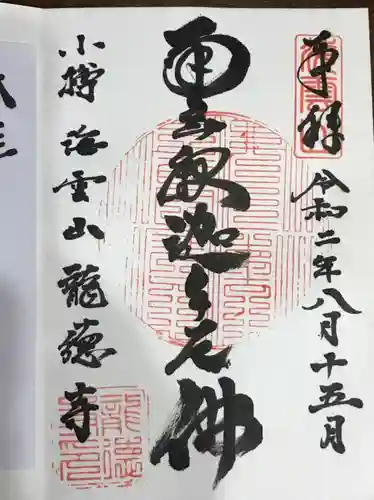 奉拝
令和二年八月十五月
南無釈迦牟尼佛
小樽 海雲山 龍徳寺